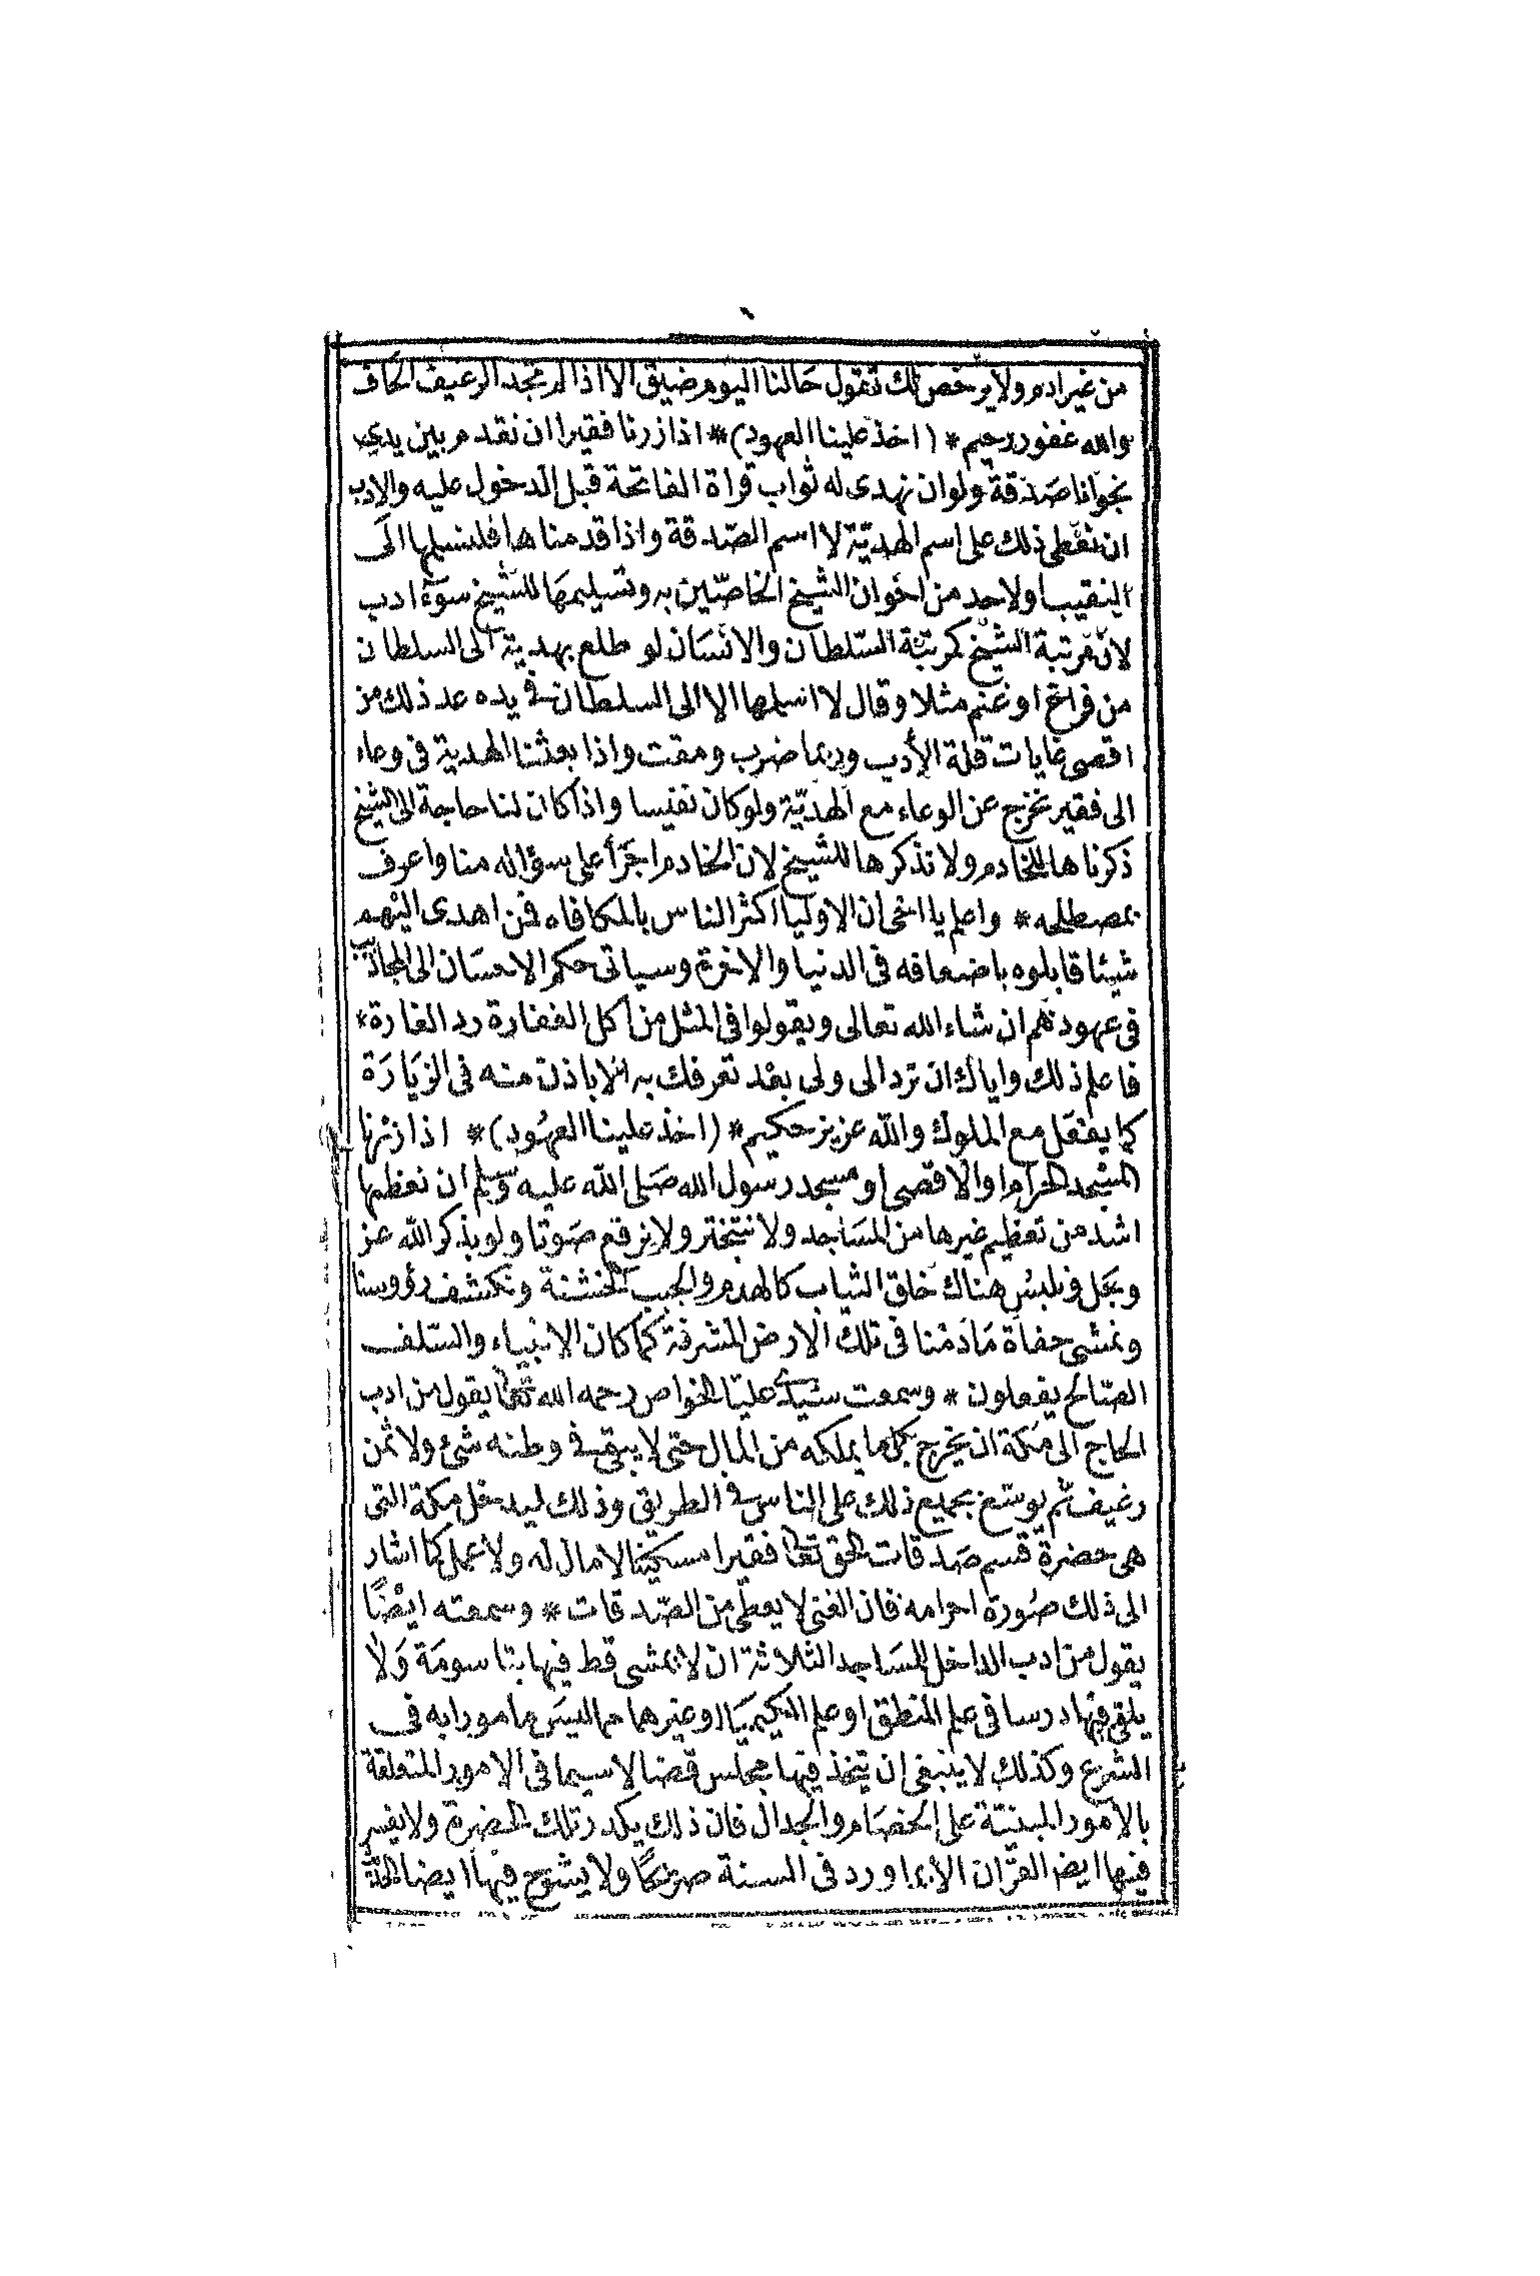 من غير ادم ولا يرخص لك تقول حالنا اليوم ضيق الا اذا لم تجد الرغيف الحاف
والله غفور رحيم * (اخذ علينا العهود) * اذا زرنا فقيرا ان نقدم بين يدي
نجوانا صدقة ولو ان نهدى له ثواب قراة الفاتحة قبل الدخول عليه والادب
ان نعطى ذلك على اسم الهديّة لا اسم الصّدقة واذا قدمناها فلنسلمها الى
النقيب او لاحد من اخوان الشيخ الخاصّين به وتسليمها للشيخ سوء ادب
لانّ مرتبة الشيخ كمرتبة السّلطان والانسان لو طلع بهدية الى السلطان
من فراخ او غنم مثلا وقال لا اسلمها الا الى السلطان فى يده عد ذلك من
اقصى غايات قلة الأدب وربما ضرب ومقت واذا بعثنا الهدية فى وعاء
الى فقير نخرج عن الوعاء مع الهديّة ولو كان نفيسا واذا كان لنا حاجة الى الشيخ
ذكرناها للخادم ولا نذكرها للشيخ لان الخادم اجرأ على سؤاله منا واعرف
بمصطلحه * واعلم يا اخى ان الاوليا اكثر الناس بالمكافاه فمن اهدى اليهم
شيئا قابلوه باضعافه فى الدنيا والاخرة وسياتى حكم الاحسان الى المجاذيب
فى عهودهم ان شاء الله تعالى ويقولوا فى المثل من أكل الغفارة رد الغارة *
فاعلم ذلك واياك ان ترد الى ولى بعد تعرفك به الا باذن منه فى الزيارة
كما يفعل مع الملوك والله عزيز حكيم * (اخذ علينا العهود) * اذا زرنا
المسجد الحرام او الاقصى او مسجد رسول الله صلى الله عليه وسلم ان نعظمها
اشد من تعظيم غيرها من المساجد ولا نتبختر ولا نرفع صوتا ولو بذكر الله عز
وجل ونلبس هناك خلق الثياب كالهدم والجبب الخشنة ونكشف رؤوسنا
ونمشى حفاة ما دمنا فى تلك الارض المشرفة كما كان الانبياء والسّلف
الصّالح يفعلون * وسمعت سيدي عليّا الخواص رحمه الله تعالى يقول من ادب
الحاج الى مكة ان يخرج بكل ما يملكه من المال حتى لا يبقى فى وطنه شئ ولا ثمن
رغيف ثم يوسّع بجميع ذلك على الناس فى الطريق وذلك ليدخل مكة التى
هى حضرة قسم صدقات الحق تعالى فقيرا مسكينا لا مال له ولا عمل كما اشار
الى ذلك صورة احرامه فان الغنى لا يعطى من الصّدقات * وسمعته ايضًا
يقول من ادب الداخل للمساجد الثلاثة ان لا يمشى قط فيها بتاسومة ولا
يلقى فيها درسا فى علم المنطق او علم الكيميا او غيرهما مما ليس مامورا به فى
الشرع وكذلك لا ينبغى ان يتخذ فيها مجلس قضا لا سيما فى الامور المتعلقة
بالامور المبنيّة على الخصام والجدال فان ذلك يكدر تلك الحضرة ولا يفسر
فيها ايضا القرّان الا بما ورد فى السنة صريحًا ولا يشرح فيها ايضا